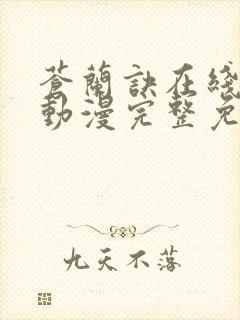 蒼蘭訣在綫
動漫完整免
九天不落